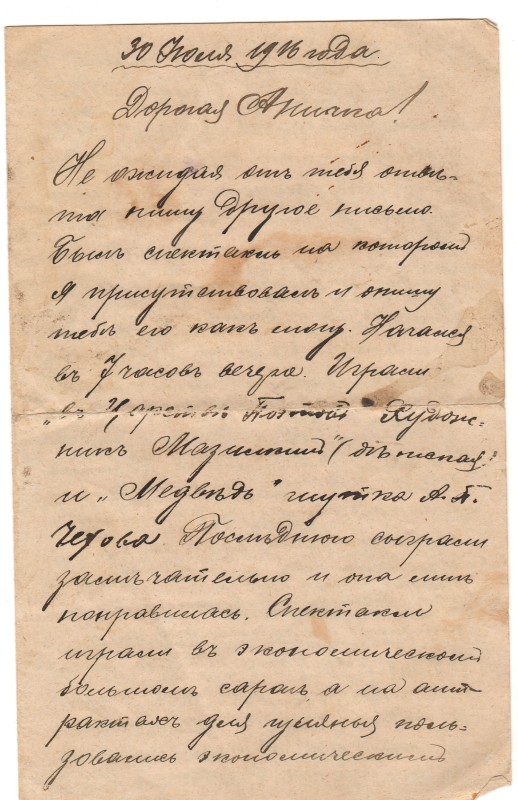 30 Июля 1916 года.
Дорогая Аничка!
Не ожидая отъ тебя отвѣ-
та пишу другое письмо.
Былъ спектакль на которомъ
Я присутствовалъ и опишу
тебѣ его какъ могу. Начался
въ 7 часовъ вечера. Играли
„въ Царствѣ Художни-
никъ Мазилкинъ" (дѣтская)
и „Медвѣдь" шутка А. П.
Чехова. Послѣднюю сыграли
замѣчательно и она мнѣ
понравилась. Спектакли
играли въ экономическомъ
большомъ сараѣ а на ант-
рактахъ для гулянья поль-
зовались экономическимъ